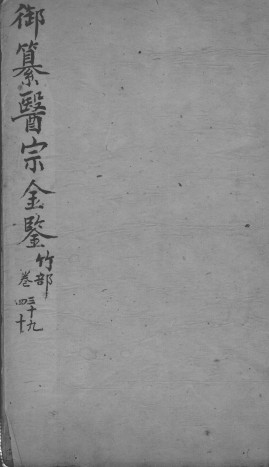 御纂醫宗金鑒
竹部
卷三十九
四十